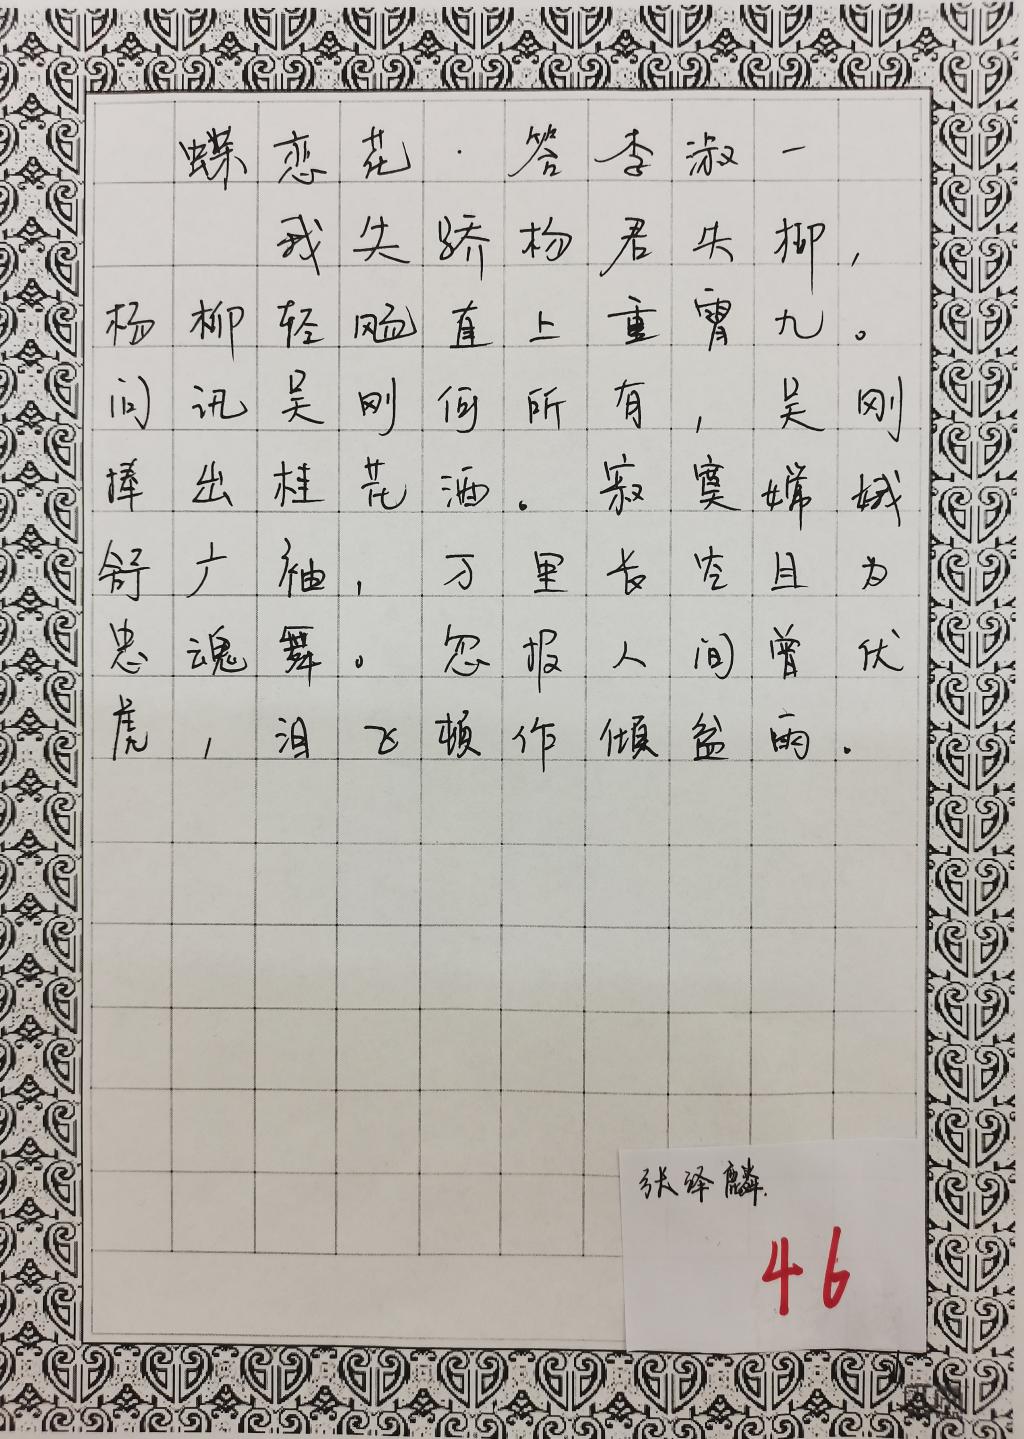 蝶恋花·答李淑一
我失骄杨君失柳，
杨柳轻飏直上重霄九。
问讯吴刚何所有，吴刚
捧出桂花酒。寂寞嫦娥
舒广袖，万里长空且为
忠魂舞。忽报人间曾伏
虎，泪飞顿作倾盆雨。
张泽麟.
46